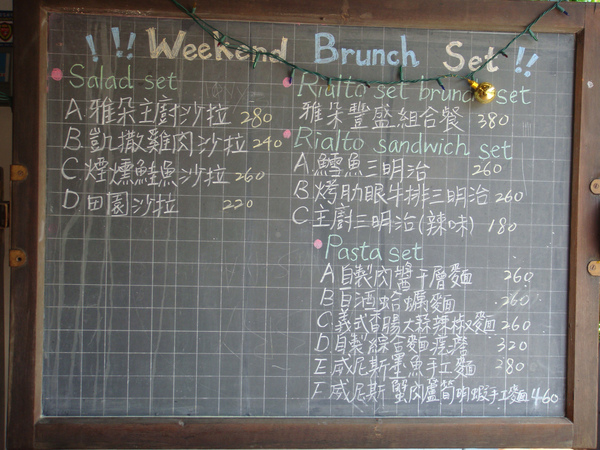 !!! Weekend Brunch Set !!
Salad set
A.雅朵主廚沙拉 280
B.凱撒雞肉沙拉 240
C.煙燻鮭魚沙拉 260
D 田園沙拉 220
Rialto set brunch set
雅朵豐盛組合餐 380
Rialto sandwich set
A.鱈魚三明治 260
B.烤肋眼牛排三明治 260
C.主廚三明治(辣味) 180
Pasta set
A 自製肉醬千層麵 260
B 白酒蛤蠣麵 260
C 義式香腸大蒜辣椒麵 260
D 自製綜合麵疙瘩 320
E 威尼斯墨魚手工麵 280
F 威尼斯蟹肉蘆筍明蝦手工麵 460